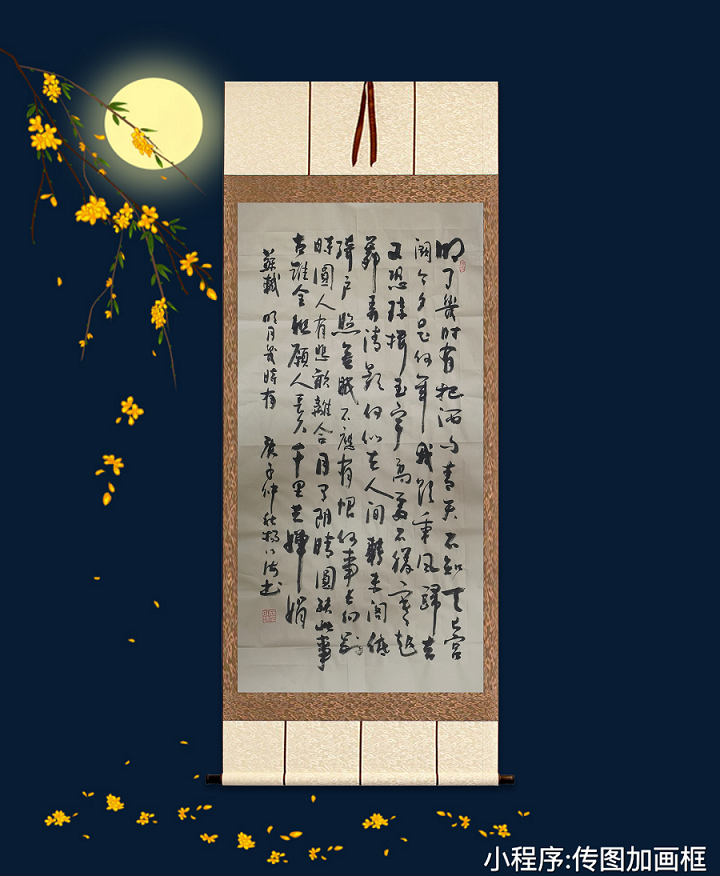 明月幾时有把酒问青天不知天上宫
阙今夕是何年我欲乘风歸去
又恐琼楼玉宇高处不勝寒起
舞弄清影何似在人间轉朱阁低
绮户照無眠不應有恨何事长向别
時圓人有悲歡離合月有阴晴圓缺此事
古難全但願人長久千里共嬋娟
蘇軾 明月幾時有 庚子仲秋楊书
小程序:传图加画框